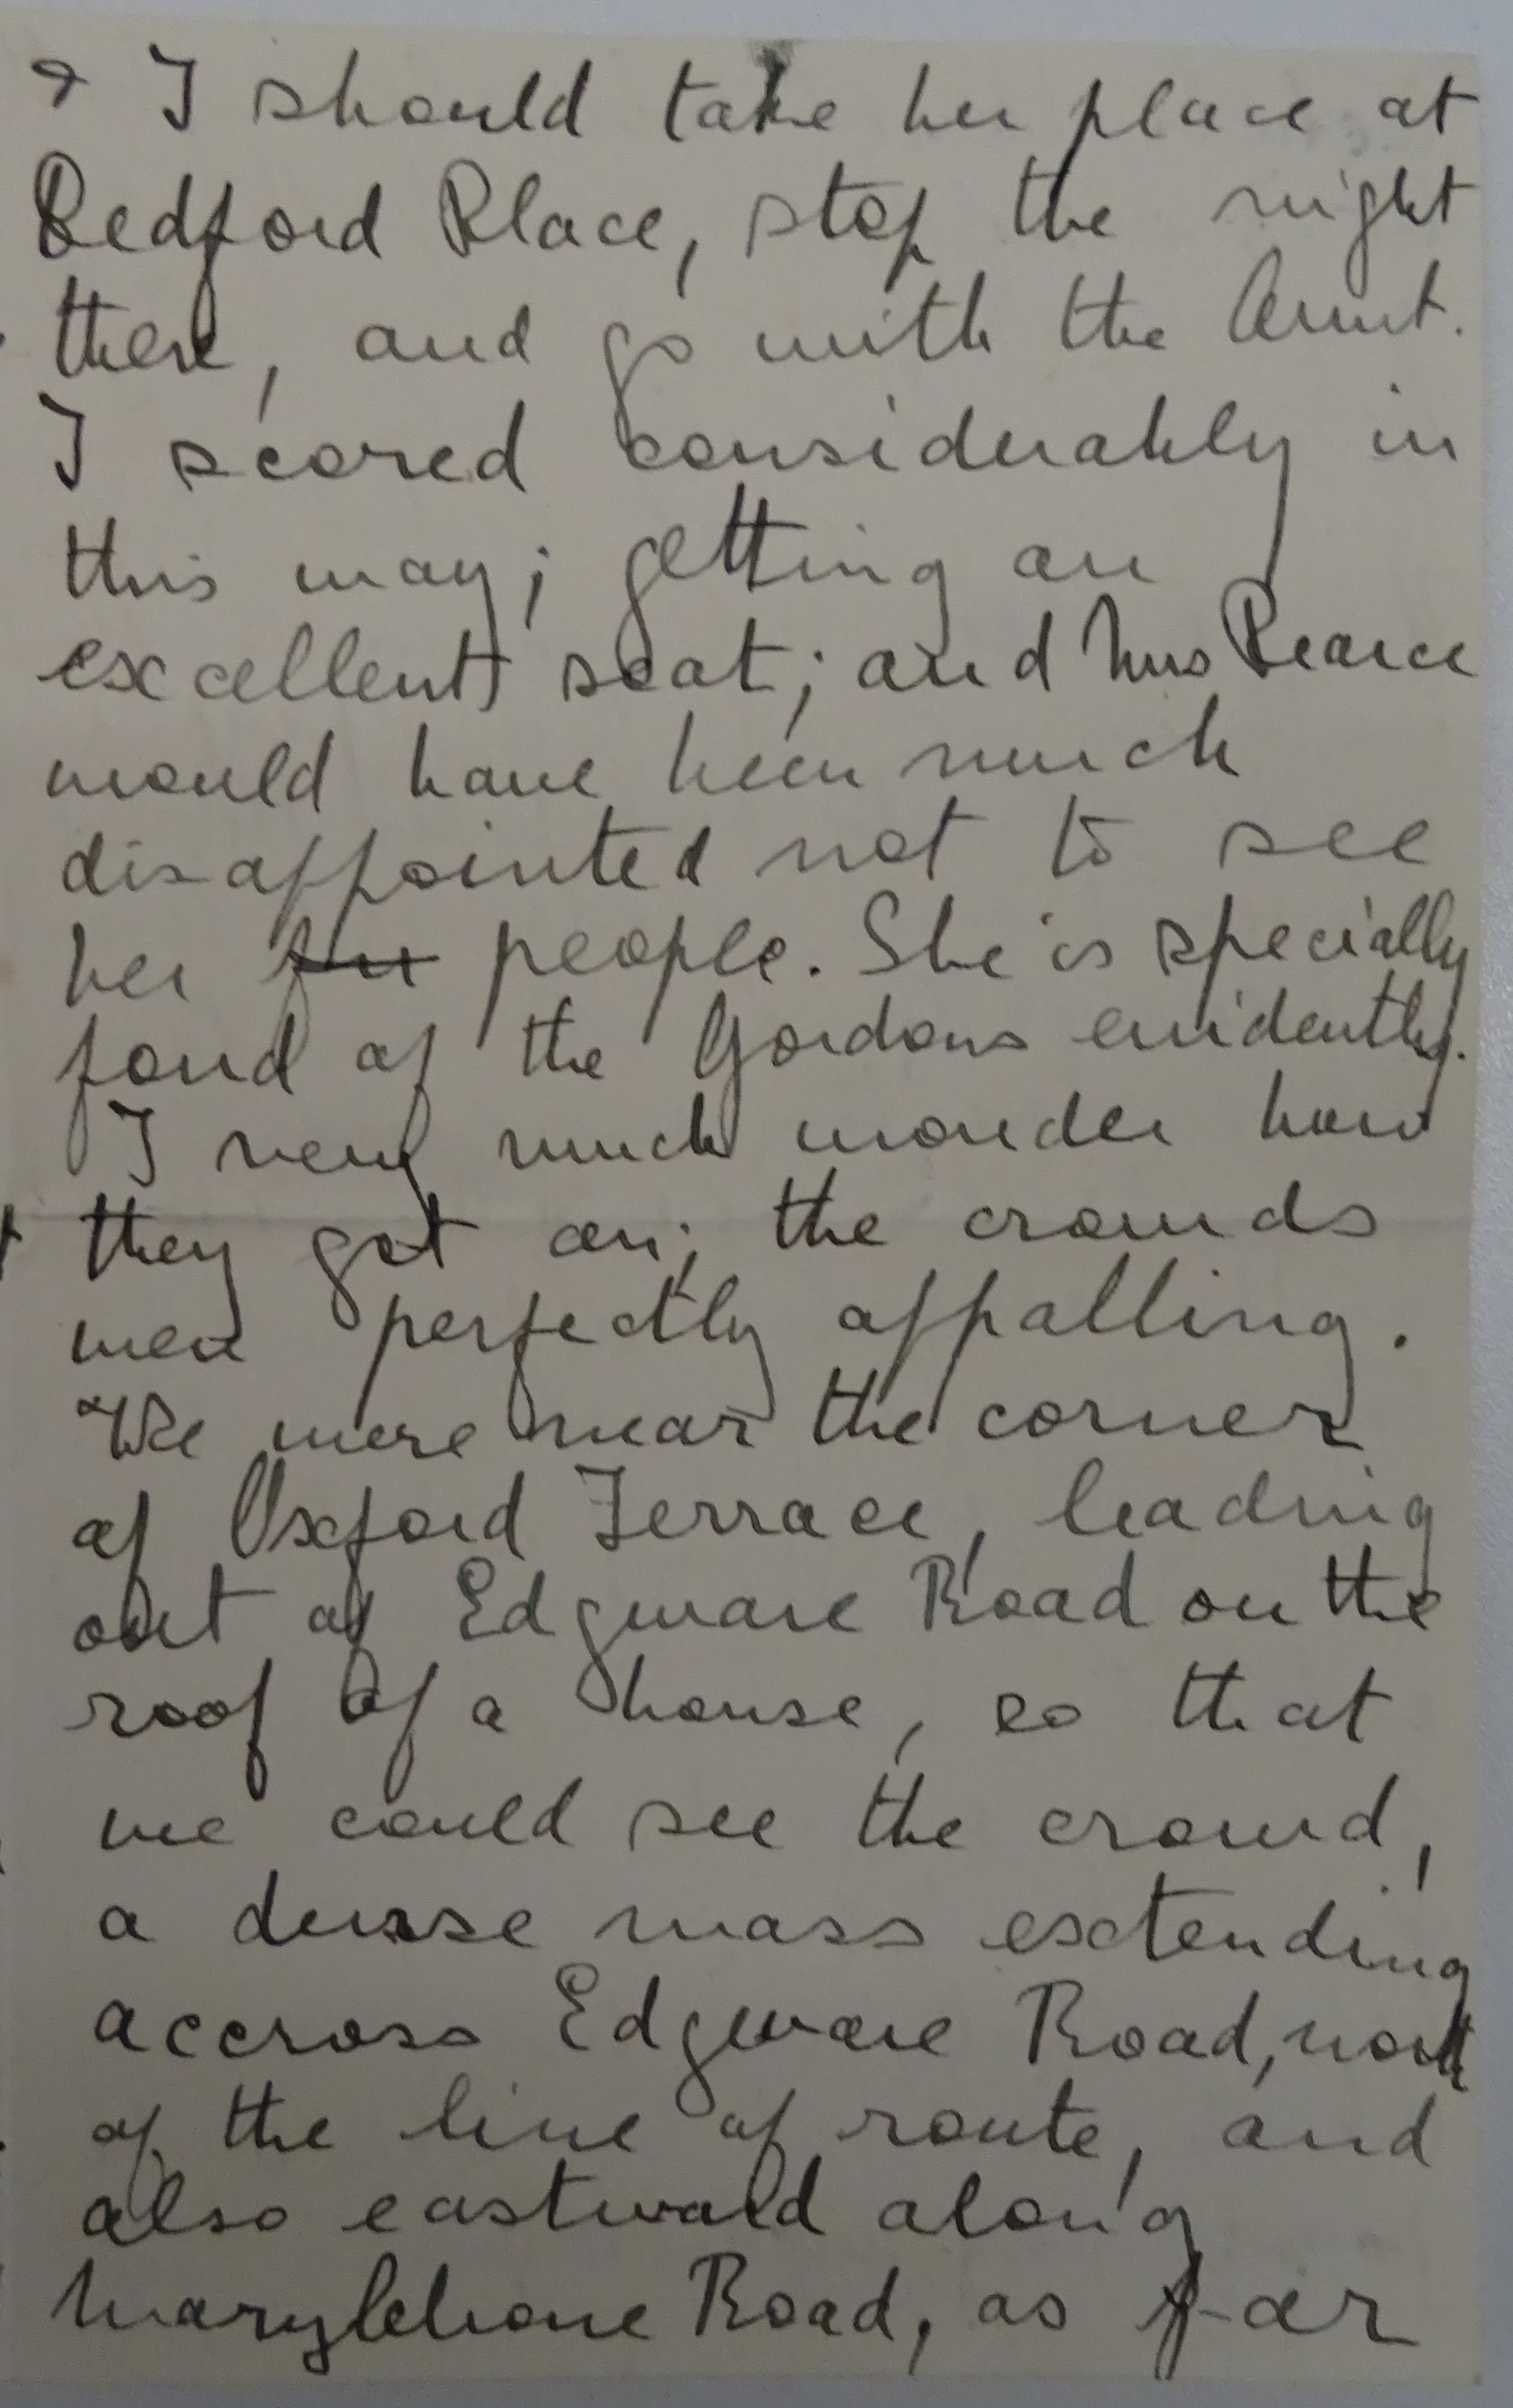 & I should take her place at
Bedford Place, stop the night
there, and go with the Aunt.
I scored considerably in
this way; getting an
excellent seat; and Miss Pearce
would have been much
disappointed not to see
her people. She is specially
fond of the Gordons evidently.
I very much wonder how
they got on; the crowds
were perfectly appalling.
We were near the corner
of Oxford Terrace, leading
out of Edgware Road on the
roof of a house, so that
we could see the crowd,
a dense mass extending
accross Edgware Road, north
of the line of route, and
also eastward along
Marylebone Road, as far